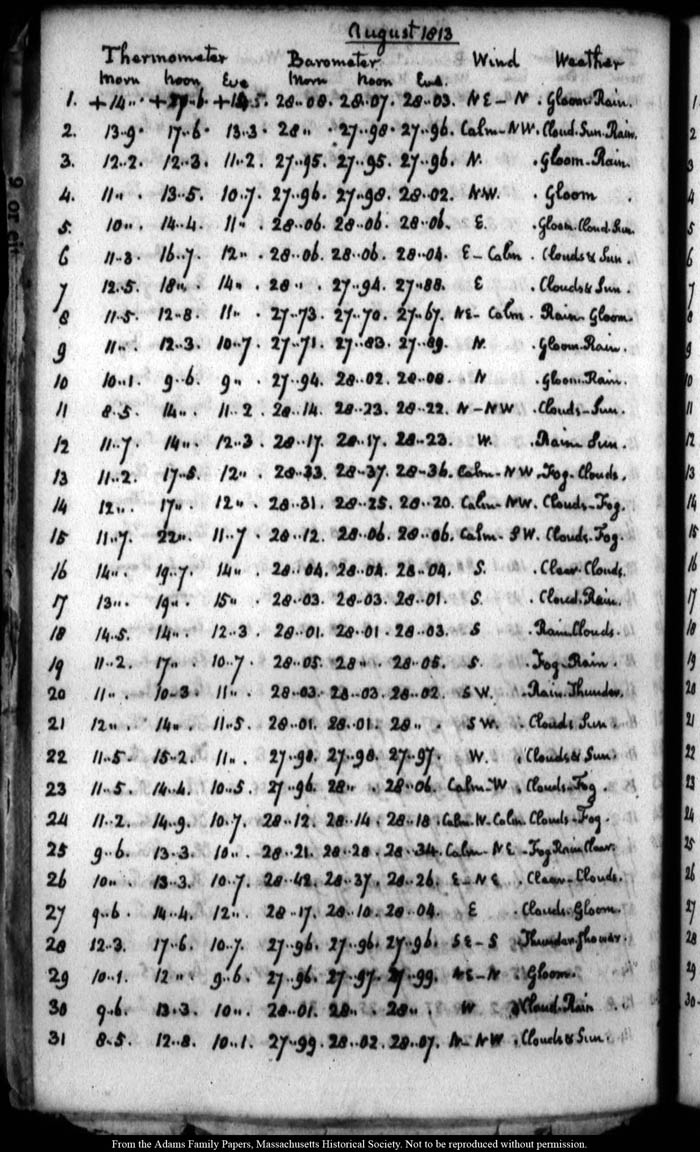 August 1813
Thermometer Barometer Wind Weather
Morn noon Eve Morn Noon Eve.
1. +14‥ +17‥6. +14‥5. 28‥08. 28‥07. 28‥03. NE–N. Gloom. Rain.
2. 13‥9. 17‥6. 13‥3. 28‥ 27‥98. 27‥96. Calm–NW. Cloud. Sun. Rain.
3. 12‥2. 12‥3. 11‥2. 27‥95. 27‥95. 27‥96. N. Gloom–Rain.
4. 11‥ 13‥5. 10‥7. 27‥96. 27‥98. 28‥02. NW. Gloom.
5. 10‥ 14‥4. 11‥ 28‥06. 28‥06. 28‥06. E. Gloom. Cloud. Sun.
6 11‥3. 16‥7. 12‥ 28‥06. 28‥06. 28‥04. E–Calm. Clouds & Sun.
7 12‥5. 18‥ 14‥ 28‥ 27‥94. 27‥88. E Clouds & Sun.
8 11‥5. 12‥8. 11‥ 27‥73. 27‥70. 27‥67. NE–Calm. Rain. Gloom.
9 11‥ 12‥3. 10‥7. 27‥71. 27‥83. 27‥89. N. Gloom. Rain.
10 10‥1. 9‥6. 9‥ 27‥94. 28‥02. 28‥08. N Gloom. Rain.
11 8‥5. 14‥ 11‥2. 28‥14. 28‥23. 28‥22. N–NW. Clouds–Sun.
12 11‥7. 14‥ 12‥3. 28‥17. 28‥17. 28‥23. W. Rain. Sun.
13 11‥2. 17‥5. 12‥ 28‥33. 28‥37. 28‥36. Calm–NW. Fog–Clouds.
14 12‥ 17‥ 12‥ 28‥31. 28‥25. 28‥20. Calm–NW. Clouds–Fog.
15 11‥7. 22‥ 11‥7. 28‥12. 28‥06. 28‥06. Calm–SW. Clouds. Fog.
16 14‥ 19‥7. 14‥ 28‥04. 28‥04. 28‥04. S. Clear. Clouds.
17 13‥ 19‥ 15‥ 28‥03. 28‥03. 28‥01. S. Cloud. Rain.
18 14‥5. 14‥ 12‥3. 28‥01. 28‥01. 28‥03. S Rain. Clouds.
19 11‥2. 17‥ 10‥7. 28‥05. 28‥ 28‥05. S. Fog–Rain.
20 11‥ 10‥3. 11‥ 28‥03. 28‥03. 28‥02. SW. Rain. Thunder.
21 12‥ 14‥ 11‥5. 28‥01. 28‥01. 28‥ SW. Clouds Sun.
22 11‥5. 15‥2. 11‥ 27‥98. 27‥98. 27‥97. W. Clouds & Sun.
23 11‥5. 14‥4. 10‥5. 27‥96. 28‥ 28‥06. Calm–W. Clouds–Fog.
24 11‥2. 14‥9. 10‥7. 28‥12. 28‥14. 28‥18. Calm. W. Calm. Clouds–Fog.
25 9‥6. 13‥3. 10‥ 28‥21. 28‥28. 28‥34. Calm–NE. Fog Rain Clear.
26 10‥ 13‥3. 10‥7. 28‥42. 28‥37. 28‥26. E–NE. Clear–Clouds.
27 9‥6. 14‥4. 12‥ 28‥17. 28‥10. 28‥04. E Clouds. Gloom.
28 12‥3. 17‥6. 10‥7. 27‥96. 27‥96. 27‥96. SE–S Thunder shower.
29 10‥1. 12‥ 9‥6. 27‥96. 27‥97. 27‥99. NE–N Gloom.
30 9‥6. 13‥3. 10‥ 28‥01. 28‥ 28‥ W Cloud. Rain
31 8‥5. 12‥8. 10‥1. 27‥99. 28‥02. 28‥07. N–NW. Clouds & Sun.
From the Adams Family Papers, Massachusetts Historical Society. Not to be reproduced without permission.